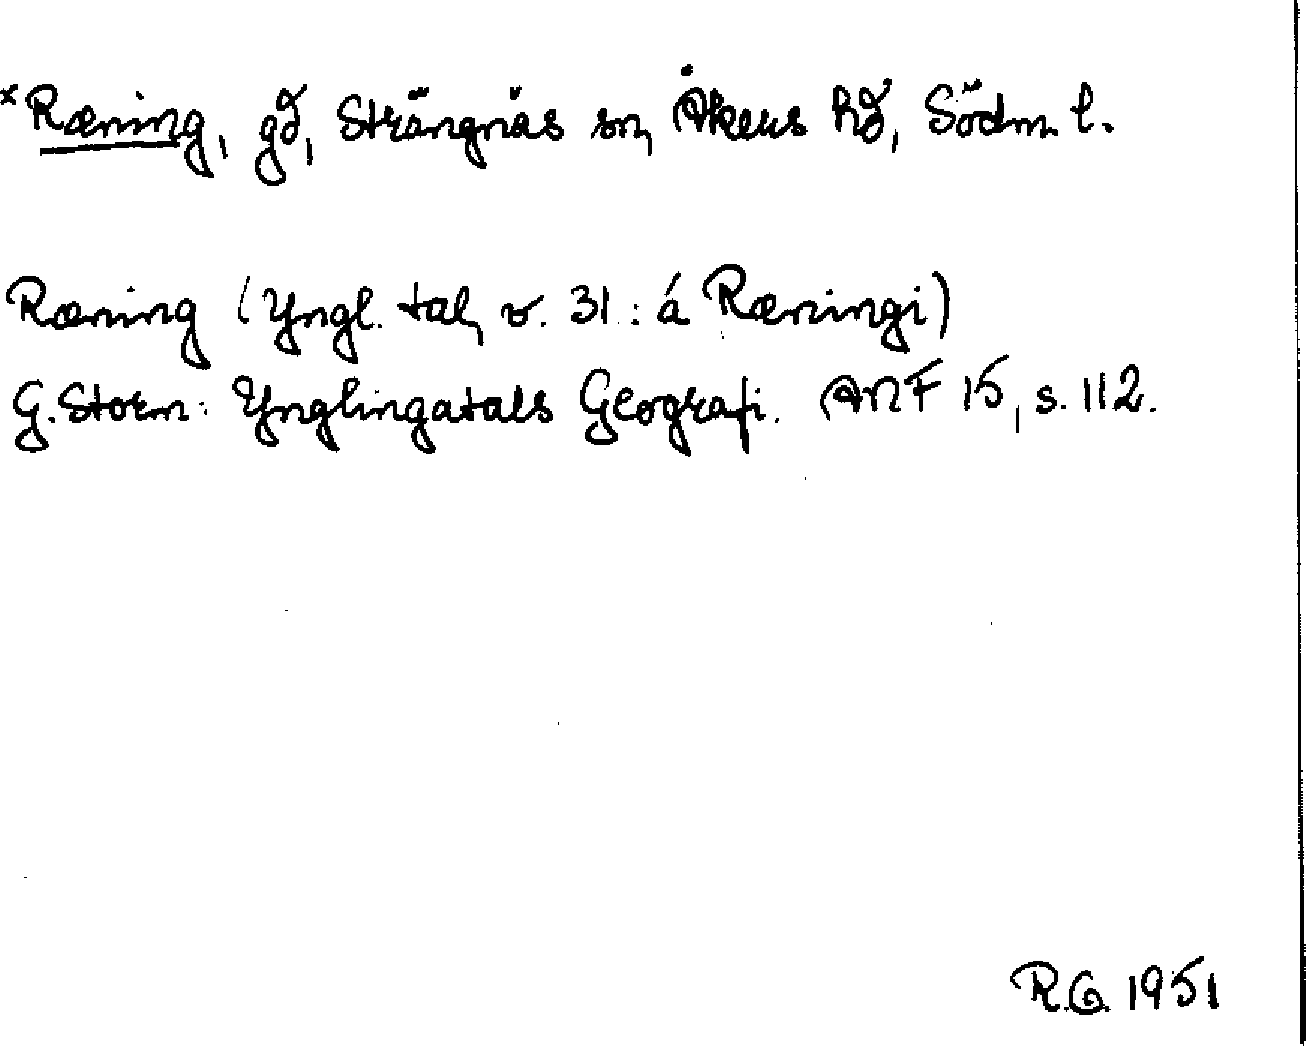 *Ræning, gd, Strängnäs sn, Åkers hd, Södm. l.
Ræning (Yngl. tal, v. 31: á Ræningi)
G. Storm: Ynglingatals Geografi. ANF 15, s. 112.
R.G. 1951